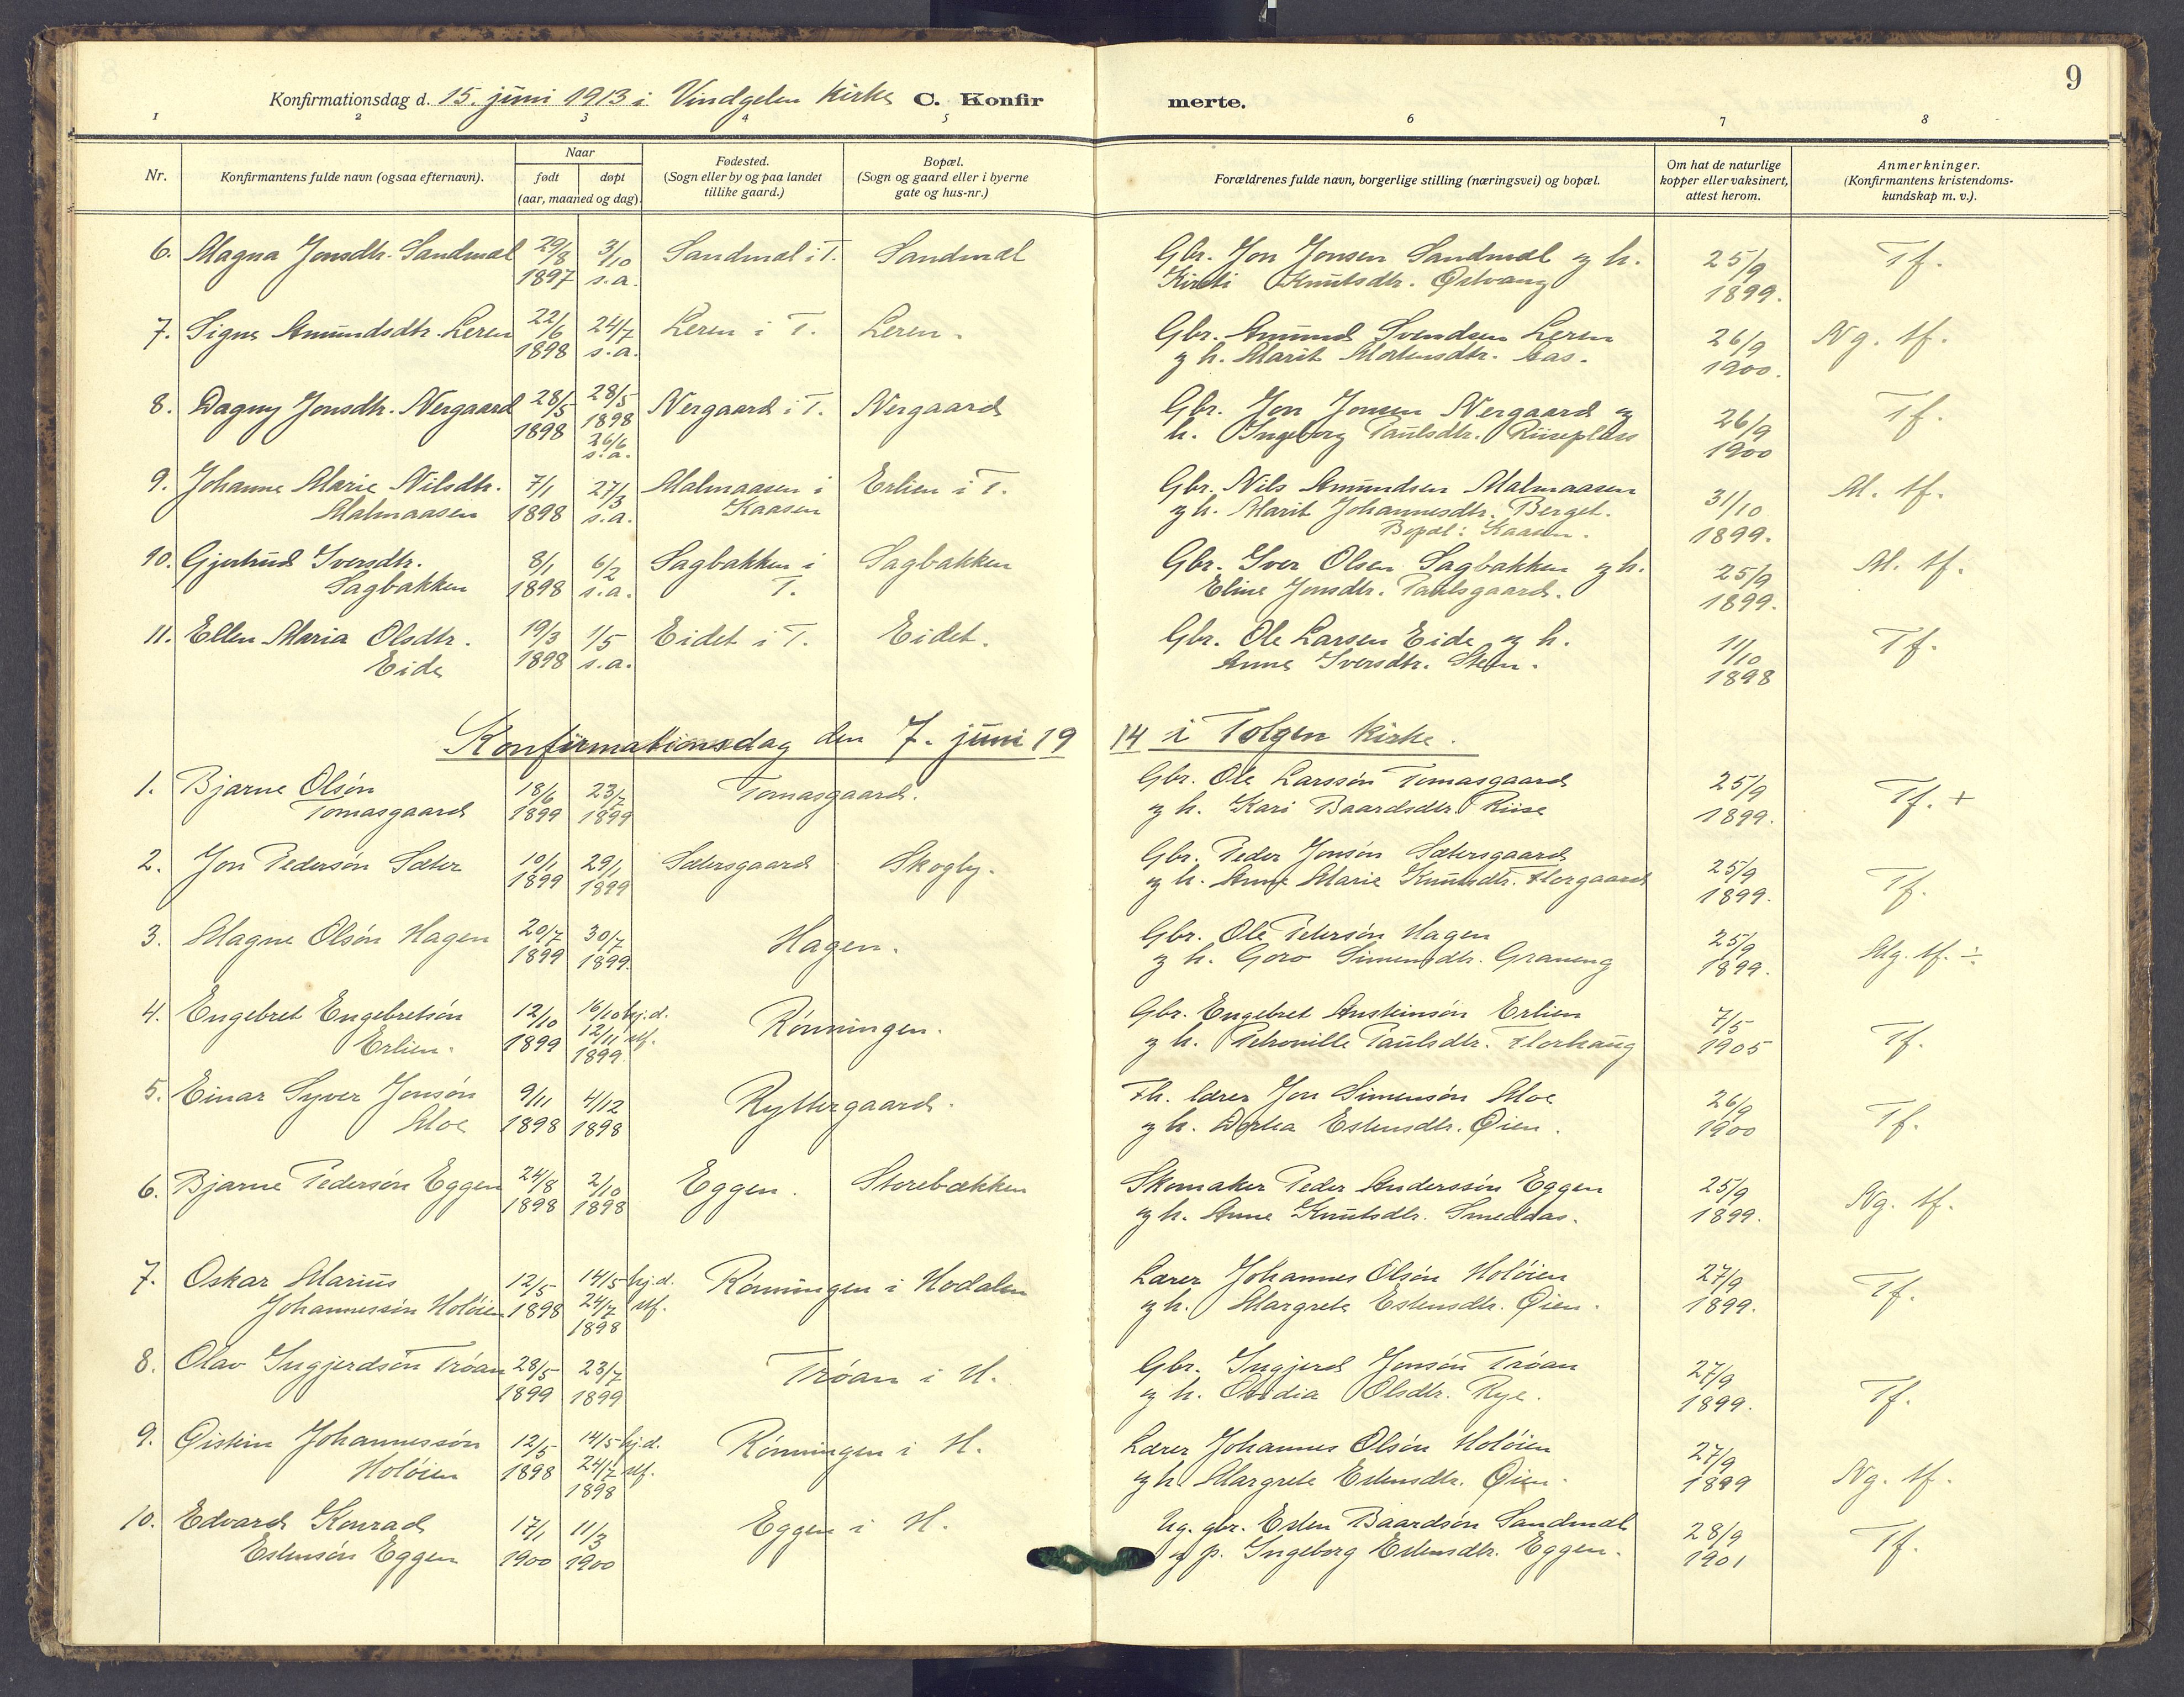 9
Konfirmationsdag d. 15. juni 1913 i Vindgelen kirke C. Konfir merte.
1 2 3 4 5 6 7 8
Nr.
Konfirmantens fulde navn (ogsaa efternavn).
Naar
født døpt
(aar, maaned og dag).
Fødested.
(Sogn eller by og paa landet
tillike gaard.)
Bopæl.
(Sogn og gaard eller i byerne
gate og hus-nr.)
Forældrenes fulde navn, borgerlige stilling (næringsvei) og bopæl.
Om hat de naturlige
kopper eller vaksinert,
attest herom.
Anmerkninger.
(Konfirmantens kristendoms-
kundskap m. v.).
6. Magna Jonsdtr. Sandmæl 29/8 3/10 Sandmæl i T. Sandmæl Gbr. Jon Jonsen Sandmæl og h. 25/9 Tf.
1897 s.a. Kirsti Knutsdtr. Østvang 1899.
7. Signe Amundsdtr. Leren 22/6 24/7 Leren i T. Leren. Gbr. Amund Svendsen Leren 26/9 Ng. tf.
1898 s.a. og h. Marit Mortensdtr. Aas. 1900.
8. Dagny Jonsdtr. Nergaard 28/5 28/5 Nergaard i T. Nergaard Gbr. Jon Jonsen Nergaard og 26/9 Tf.
1898 1898 h. Ingeborg Paulsdtr. Riiseplass 1900
26/6
s.a.
9. Johanne Marie Nilsdtr. 7/1 27/3 Malmaasen i Erlien i T. Gbr. Nils Amundsen Malmaasen 31/10 M. tf.
Malmaasen 1898 s.a. Kaasen og h. Marit Johannesdtr. Berget. 1899.
Bopæl: Kaasen.
10. Gjertrud Iversdtr. 8/1 6/2 Sagbakken i Sagbakken Gbr. Iver Olsen Sagbakken og h. 25/9 M. tf.
Sagbakken 1898 s.a. T. Eline Jonsdtr. Paulsgaard. 1899.
11. Ellen Maria Olsdtr. 19/3 1/5 Eidet i T. Eidet. Gbr. Ole Larsen Eide og h. 11/10 Tf.
Eide 1898 s.a. Anne Iversdtr. Steen. 1898
Konfirmationsdag den 7. juni 19 14 i Tolgen kirke.
1. Bjarne Olsön 18/6 23/7 Tomasgaard. Gbr. Ole Larssön Tomasgaard 25/9 Tf. +
Tomasgaard 1899 1899 og h. Kari Baardsdtr. Riise 1899.
2. Jon Pedersön Sæter 10/1 29/1 Sætersgaard Skogly. Gbr. Peder Jonsön Sætersgaard 25/9 Tf.
1899 1899 og h. Anne Marie Knutsdtr. Florgaard 1899.
3. Magne Olsön Hagen 20/7 30/7 Hagen. Gbr. Ole Petersön Hagen 25/9 Mg. tf. ÷
1899 1899. og h. Goro Simensdtr. Graneng 1899.
4. Engebret Engebretsön 12/10 16/10 hj.d. Rönningen. Gbr. Engebret Austeinsön Erlien 7/5 Tf.
Erlien. 1899 12/11 stf. og h. Petronille Paulsdtr. Florhaug 1905
1899.
5. Einar Syver Jonsön 9/11 4/12 Ryttergaard. Fh. lærer Jon Simensön Moe 26/9 Tf.
Moe 1898 1898 og h. Dortea Estensdtr. Øien. 1900
6. Bjarne Pedersön Eggen 24/8 2/10 Eggen. Storebækken Skomaker Peder Anderssön Eggen 25/9 Ng. tf.
1898 1898 og h. Anne Knutsdtr. Smeddas. 1899.
7. Oskar Marius 12/5 14/5 hj.d. Rönningen i Hodalen Lærer Johannes Olsön Holöien 27/9 Tf.
Johannessön Holöien 1898 24/7 stf. og h. Margrete Estensdtr. Øien. 1899.
1898
8. Olav Ingjerdsön Tröan 28/5 23/7 Tröan i H. Gbr. Ingjerd Jonsön Tröan 27/9 Tf.
1899 1899 og h. Ovidia Olsdtr. Rye. 1899.
9. Øistein Johannessön 12/5 14/5 hj.d. Rönningen i H. Lærer Johannes Olsön Holöien 27/9 Ng. tf.
Holöien 1898 24/7 stf. og h. Margrete Estensdtr. Øien. 1899
1898
10. Edvard Konrad 17/1 11/3 Eggen i H. Ug. gbr. Esten Baardsön Sandmæl 28/9 Tf.
Estensön Eggen 1900 1900 og p. Ingeborg Estensdtr. Eggen. 1901